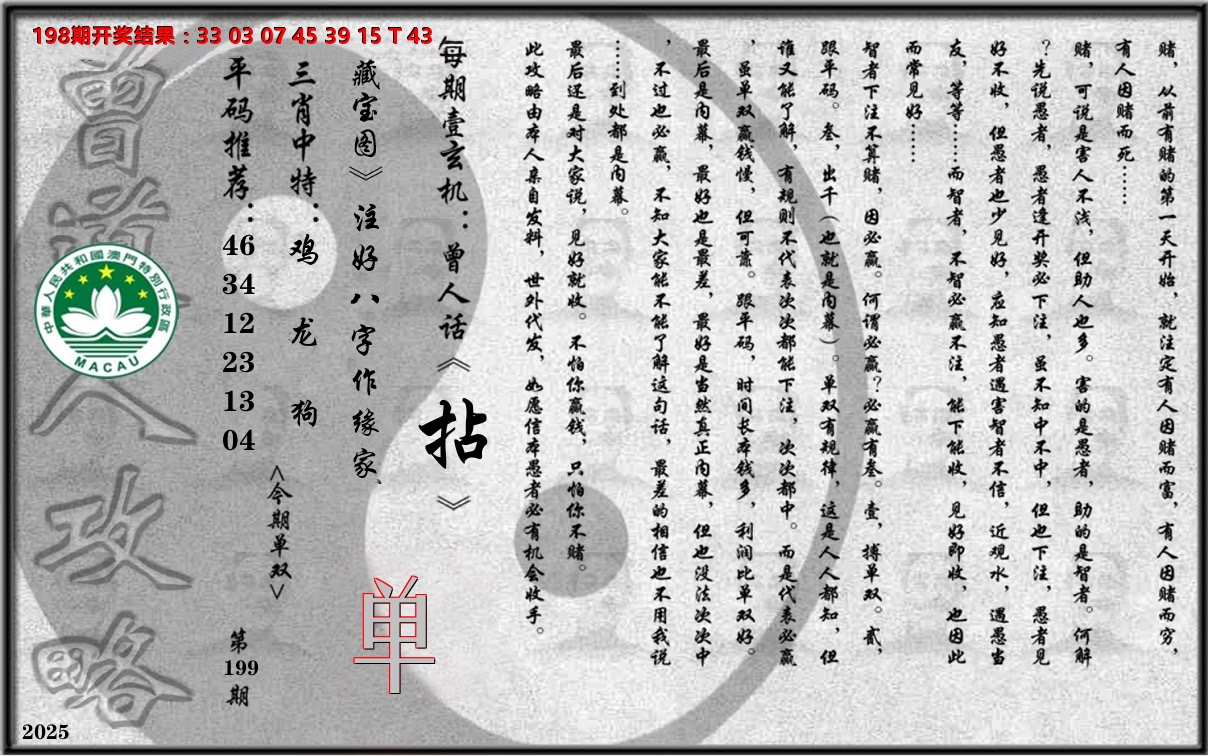 198期开奖结果：33 03 07 45 39 15 T 43
赌，从前有赌的第一天开始，就注定有人因赌而富，有人因赌而穷，
有人因赌而死……
赌，可说是害人不浅，但助人也多。害的是愚者，助的是智者。何解
？先说愚者，愚者逢开奖必下注，虽不知中不中，但也下注，愚者见
好不收，但愚者也少见好，应知愚者遇害智者不信，近观水，遇愚当
友，等等……而智者，不智必赢不注，能下能收，见好即收，也因此
而常见好……
智者下注不算赌，因必赢。何谓必赢？必赢有叁。壹，搏单双。贰，
跟平码。叁，出千（也就是内幕）。单双有规律，这是人人都知，但
谁又能了解，有规则不代表次次都能下注，次次都中。而是代表必赢
，虽单双赢钱慢，但可靠。跟平码，时间长本钱多，利润比单双好。
最后是内幕，最好也是最差，最好是当然真正内幕，但也没法次次中
，不过也必赢，不知大家能不能了解这句话，最差的相信也不用我说
……到处都是内幕。
最后还是对大家说，见好就收。不怕你赢钱，只怕你不赌。
此攻略由本人亲自发料，世外代发，如愿信本愚者必有机会收手。
每期壹玄机：曾人话《拈》
藏宝图》注好八字作缘家、
单
三肖中特：鸡 龙 狗
<今期单双>
平码推荐：46 34 12 23 13 04
第199期
曾道人攻略
中華人民共和國澳門特別行政區
MACAU
2025